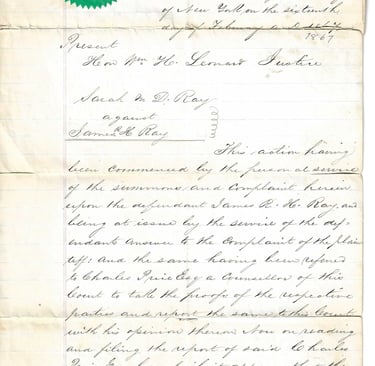 of New York on the sixteenth
day of February
1867
Present
Hon Wm H. Leonard Justice
Sarah M D. Ray
against
James R H Ray
This action having
been commenced by the personal service
of the summons and Complaint herein
upon the defendant James R. H. Ray, and
being at issue by the service of the def-
endants answer to the Complaint of the plain
tiff: And the same having been referred
to Charles Price Esq a Counsellor of this
Court to take the proofs of the respective
parties and report the same to this Court
with his opinion thereon Now on reading
and filing the report of said Charles